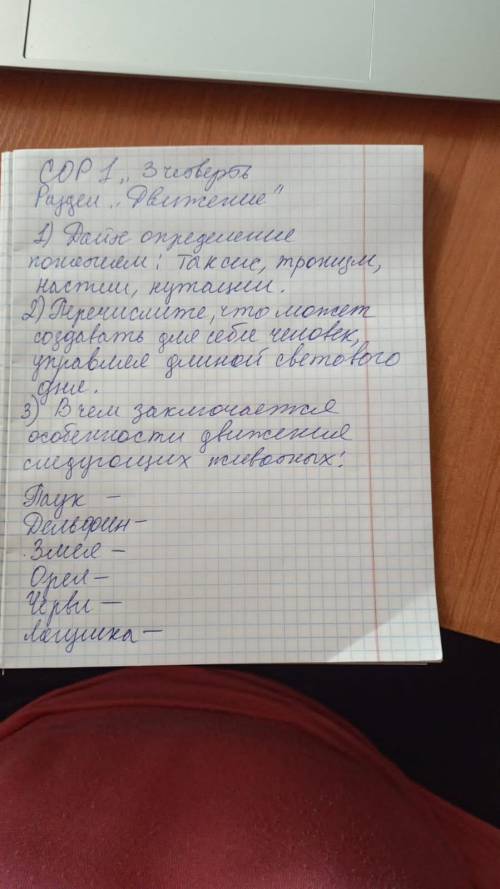 СОР 1,, 3 четверть
Раздел „Движение"
1) Дайте определение
понятием: Таксис, тропизм,
настии, нутации.
2) Перечислите, что может
создавать для себя человек,
управляя длиной светового
дня.
3) В чем заключается
особенности движения
следующих животных:
Паук –
Дельфин –
Змея –
Орел –
Черви –
Лягушка –